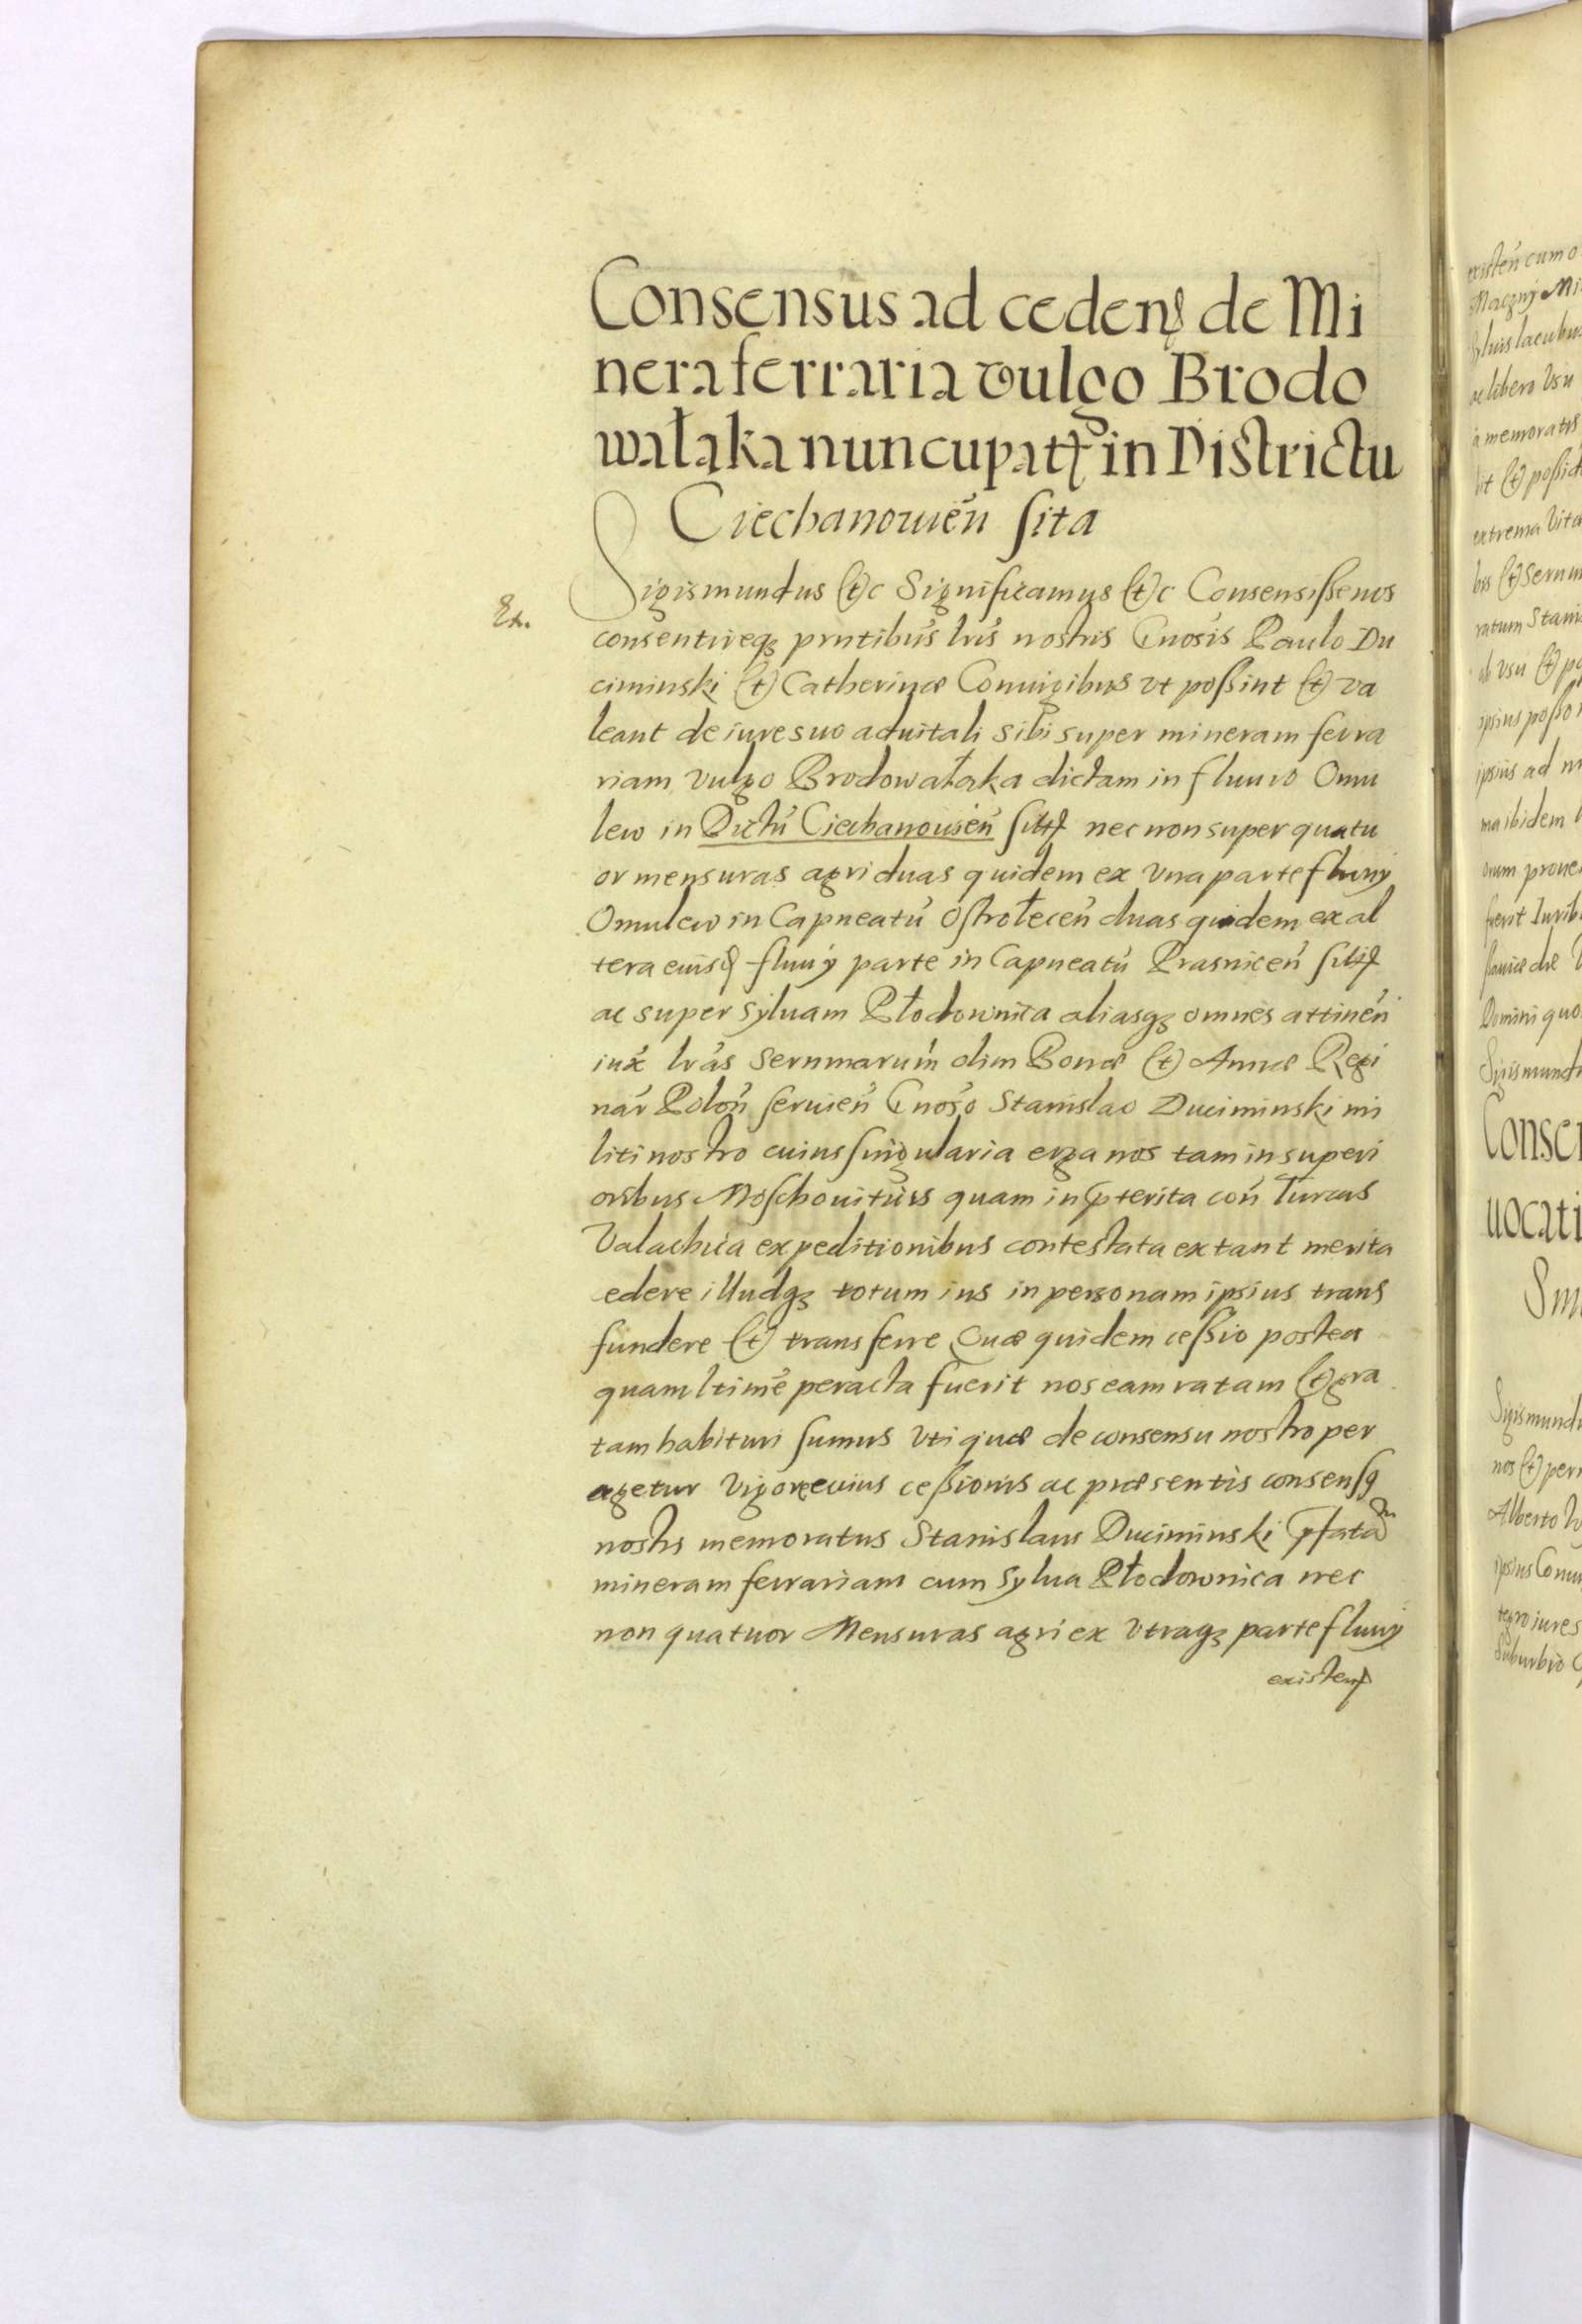 Consensus ad cedenḍ de Mi
nera ferraria vulgo Brodo
wałaka nuncupatꝭ in Districtu
Ciechanowień sita
Ex.
Sigismundus (et)c Significamus (et)c Consensisse nos
consentireqꝫ pntibus lris nostris Gnosis Paulo Du
ciminski (et) Catherinæ Coniugibus vt possint (et) va
leant de iure suo aduitali sibi super mineram ferra
riam vulgo Brodowałaka dictam in fluuio Omu
lew in Dictu Ciechanowień sitꝭ nec non super quatu
or mensuras agri duas quidem ex vna parte fluuÿ
Omulew in Capneatu Ostrołeceń duas quidem ex al
tera eiusḍ fluuÿ parte in Capneatu Prasniceń sitꝭ
ac super syluam Płodownica aliasqꝫ omnes attineń
iux lras Sernmarum olim Bonæ (et) Annæ Regi
nar Poloń seruień Gnoso Stanislao Duciminski mi
liti nostro cuius singularia erga nos tam in superi
oribus Moschouiticis quam in pterita con Turcas
Valachica expeditionibus contestata extant merita
cedere illudqꝫ totum ius in personam ipsius trans
fundere (et) transferre Quæ quidem cessio postea
quam ltime peracta fuerit nos eam ratam (et) gra
tam habituri sumus vti quæ de consensu nostro per
agetur vigore cuius cessionis ac præsentis consensꝯ
nostri memoratus Stanislaus Duciminski pfatam
mineram ferrariam cum sylua Płodownica nec
non quatuor Mensuras agri ex vtraqꝫ parte fluuÿ
existenꝭ
existeń cum o
Maczny Mi
luis lacubu
ac libero vsu
a memoratis
bit (et) possid
extrema vita
bis (et) Sernm
ratum Stani
ab vsu (et) po
ipsius posso
ipsius ad m
ma ibidem
orum proue
fuerit Iurib
Domini quo
Sigismundi
Consen
uocati
Sigismundu
nos (et) per
Alberto
ipsius Coniu
tegro iure s
Suburbio